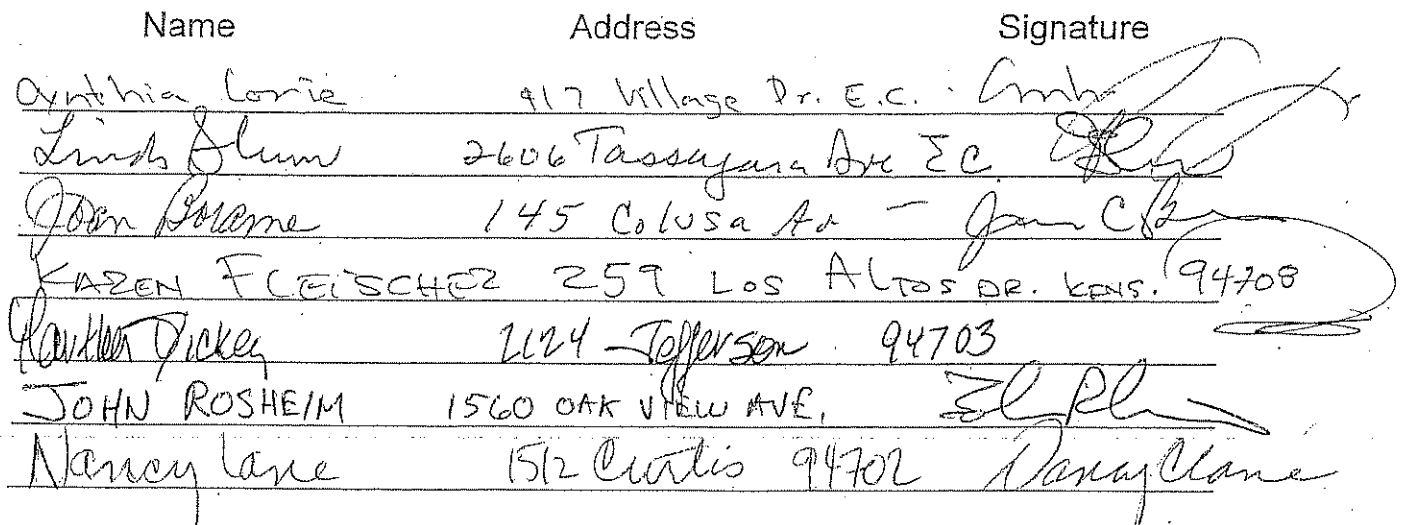 Name Address Signature
Cynthia Lorie 917 Village Dr. E.C.
Linda Blum 2606 Tassajara Ave EC
Joan 145 Colusa Av - Joan C
KAREN FLEISCHER 259 LOS ALTOS DR. KENS. 94708
Dickey 2124 Jefferson 94703
JOHN ROSHEIM 1560 OAK VIEW AVE,
Nancy Lane 1512 Curtis 94702 Nancy Lane